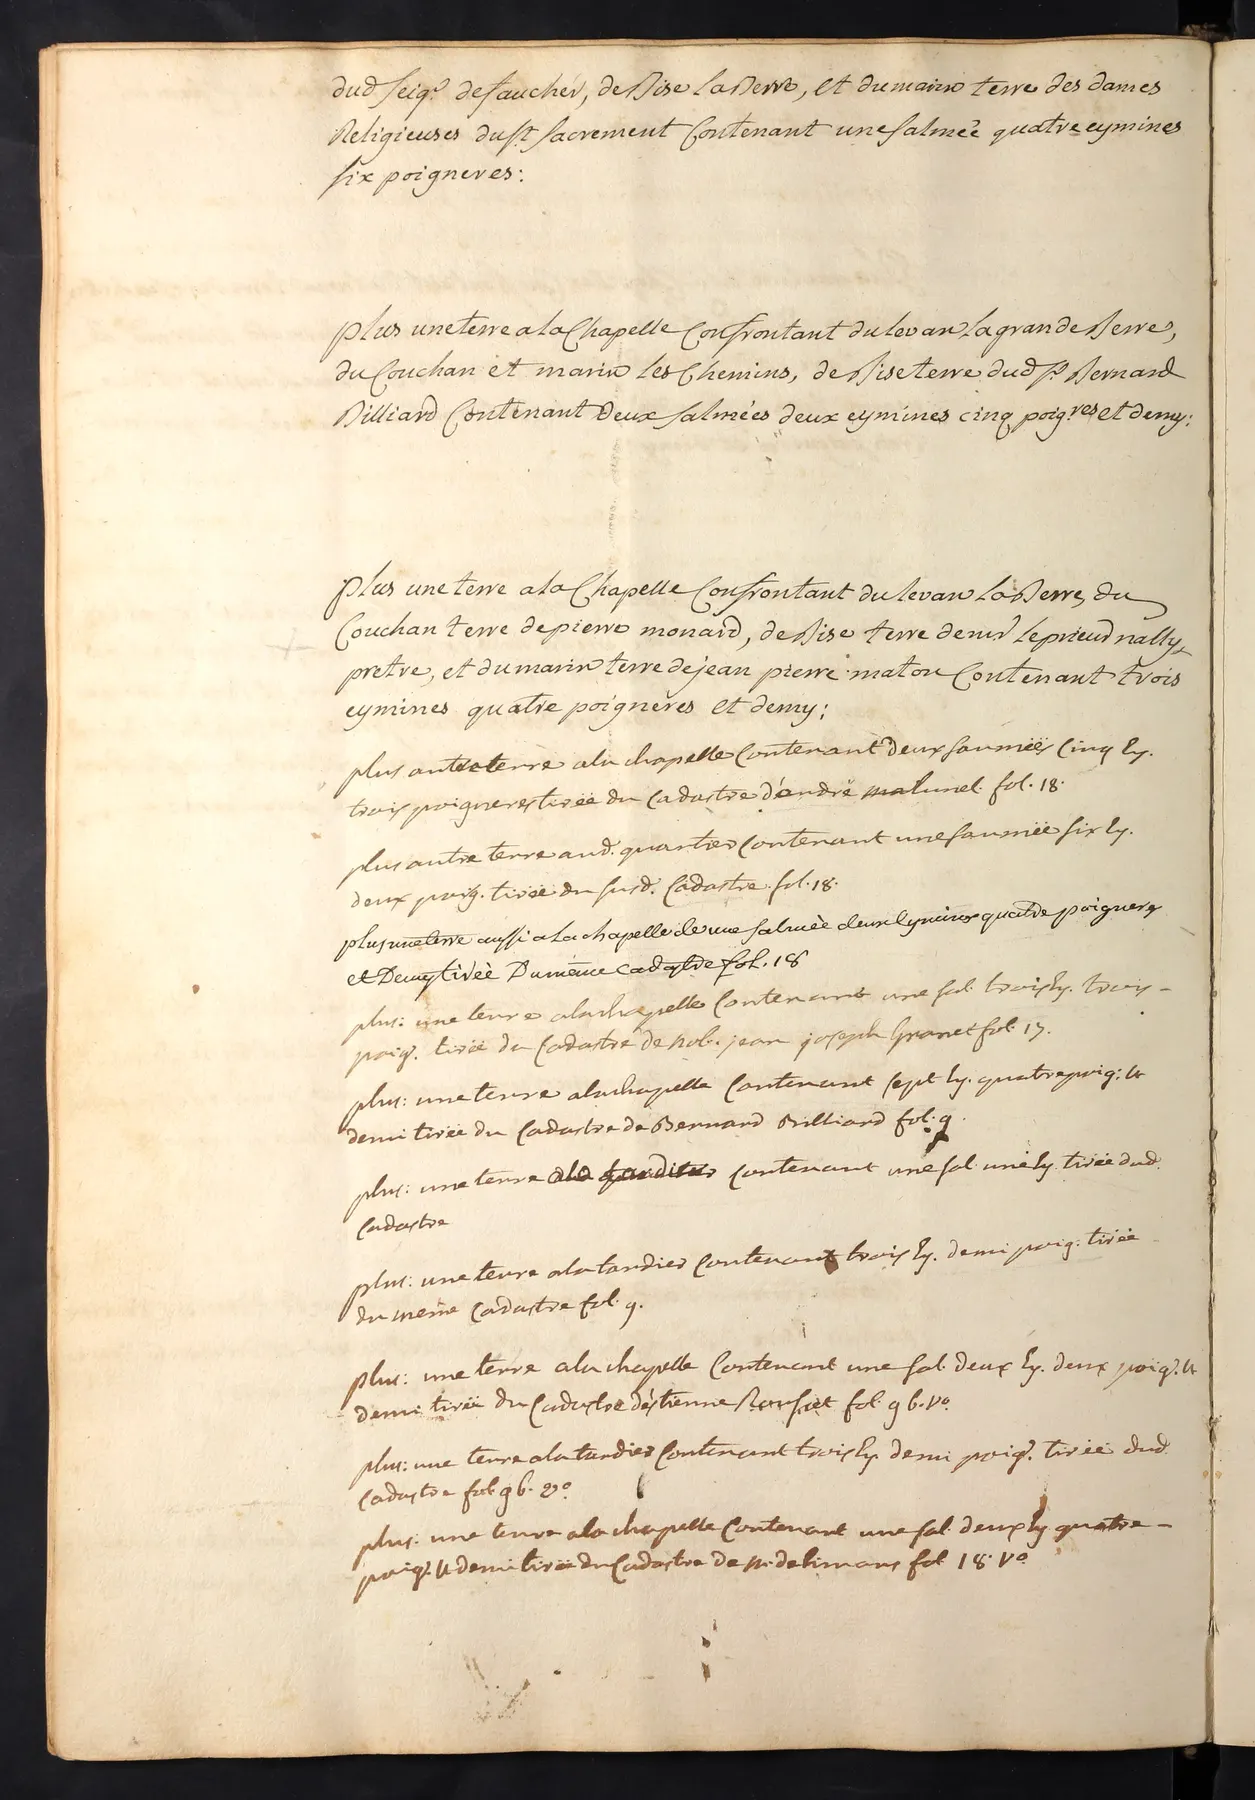 dud seigr. de faucher, de Bise la Berre, et du marin terre des dames
Religieuses du st. sacrement Contenant une salmée quatre eymines
six poigneres:
plus une terre a la Chapelle Confrontant du levan la grande Berre,
du Couchan et marin les Chemins, de Bise terre dud sr. Bernard
Billiard Contenant Deux salmées deux eymines cinq poigres et demy:
plus une terre a la Chapelle Confrontant du levan la Berre, du
Couchan terre de pierre monard, de Bise terre de mr. le prieur nally
pretre, et du marin terre de jean pierre maton Contenant trois
eymines quatre poigneres et demy;
plus autre terre a la chapelle Contenant deux saumées Cinq Ey.
trois poigneres tirée du Cadastre d'andré fol. 18.
plus autre terre aud. quartier Contenant une saumée six Ey.
deux poig. tirée du susd. Cadastre fol. 18.
plus une terre aussi a la chapelle de une salmée deux Eymines quatre poigneres
et Demy tirée Du meme cadastre fol. 18
plus: une terre a la chapelle Contenant une sal. trois Ey. trois -
poigr. tirée du Cadastre de nob. jean joseph Granet fol. 17.
plus: une terre a la chapelle Contenant sept Ey. quatre poig: &
demi tirée du Cadastre de Bernard Billiard fol. 9
plus: une terre a la Contenant une sal. une Ey. tirée dud.
Cadastre
plus: une terre a la tardier Contenant trois Ey. demi poig: tirée
du meme Cadastre fol. 9.
plus: une terre a la chapelle Contenant une sal. deux Ey. deux poigr. &
demi tirée du Cadastre d'estienne Rousset fol. 96. vo.
plus: une terre a la tardier Contenant trois Ey. demi poigr. tirée dud.
Cadastre fol. 96. vo.
plus: une terre a la chapelle Contenant une sal. deux Ey quatre -
poigr. & demi tirée du Cadastre de fol 18. vo.